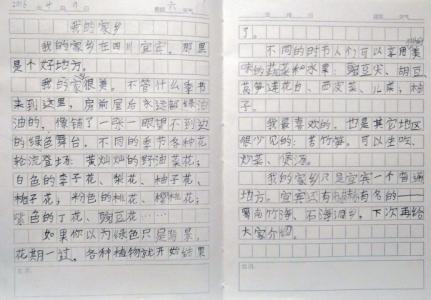 2016 4 六
我的家乡
我的家乡在四川宜宾。那里
是个好地方。
我的家乡很美。不管什么季节
来到这里，房前屋后永远都绿油
油的，像铺了一张一眼望不到边
的绿色舞台，不同的季节各种花
轮流登场：黄灿灿的野油菜花；
白色的李子花、梨花、柚子花、
柚子花；粉色的桃花、樱桃花；
紫色的丁花、豌豆花……
如果你以为绿色只是背景，
花期一过，各种植物就开始结果
了。
不同的时节人们可以享用美
味的蔬菜和水果：豌豆尖、胡豆、
莴笋莲花白、西皮菜、儿菜；柚
子。
我最喜欢的，也是其它地区
很少见的：苦竹笋。可以生吃、
炒菜、煲汤。
我的家乡只是宜宾一个普通
地方。宜宾还有有名的——
蜀南竹海、石海洞乡，下次再给
大家介绍。